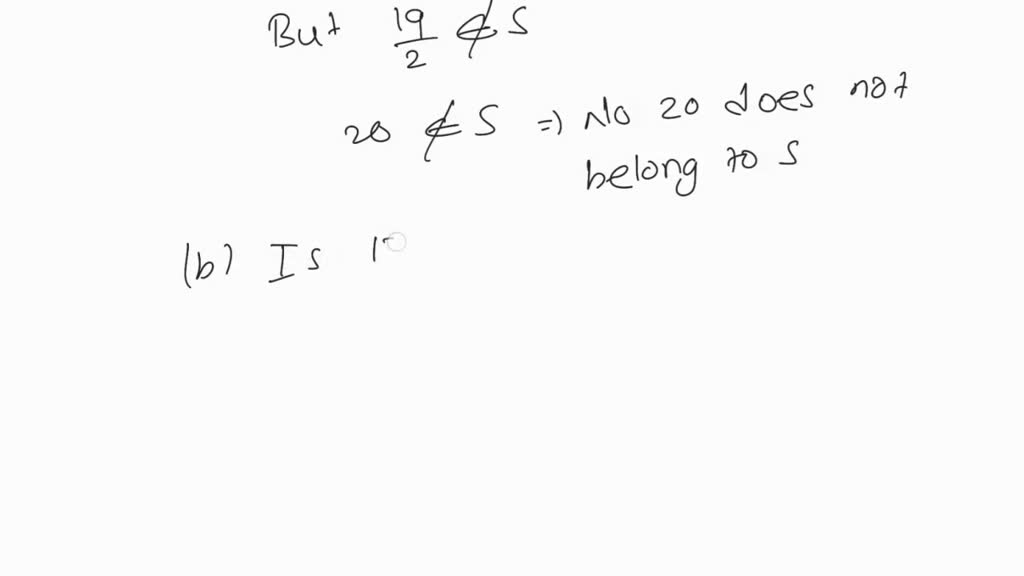 But 19/2 ∉ S
20 ∉ S => No 20 does not
belong to S
(b) Is